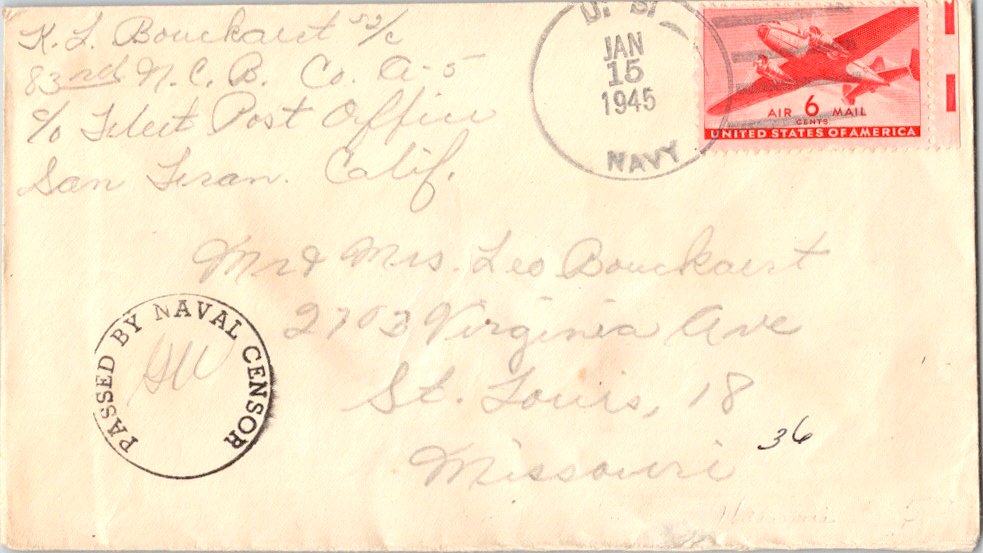 K. L. Bouckaert S2/c
83rd N.C.B. Co. A-5
c/o Fleet Post Office
San Fran. Calif.
U. S.
JAN
15
1945
NAVY
AIR 6 MAIL
CENTS
UNITED STATES OF AMERICA
Mr & Mrs. Leo Bouckaert
2703 Virginia Ave
St. Louis, 18
Missouri
36
PASSED BY NAVAL CENSOR